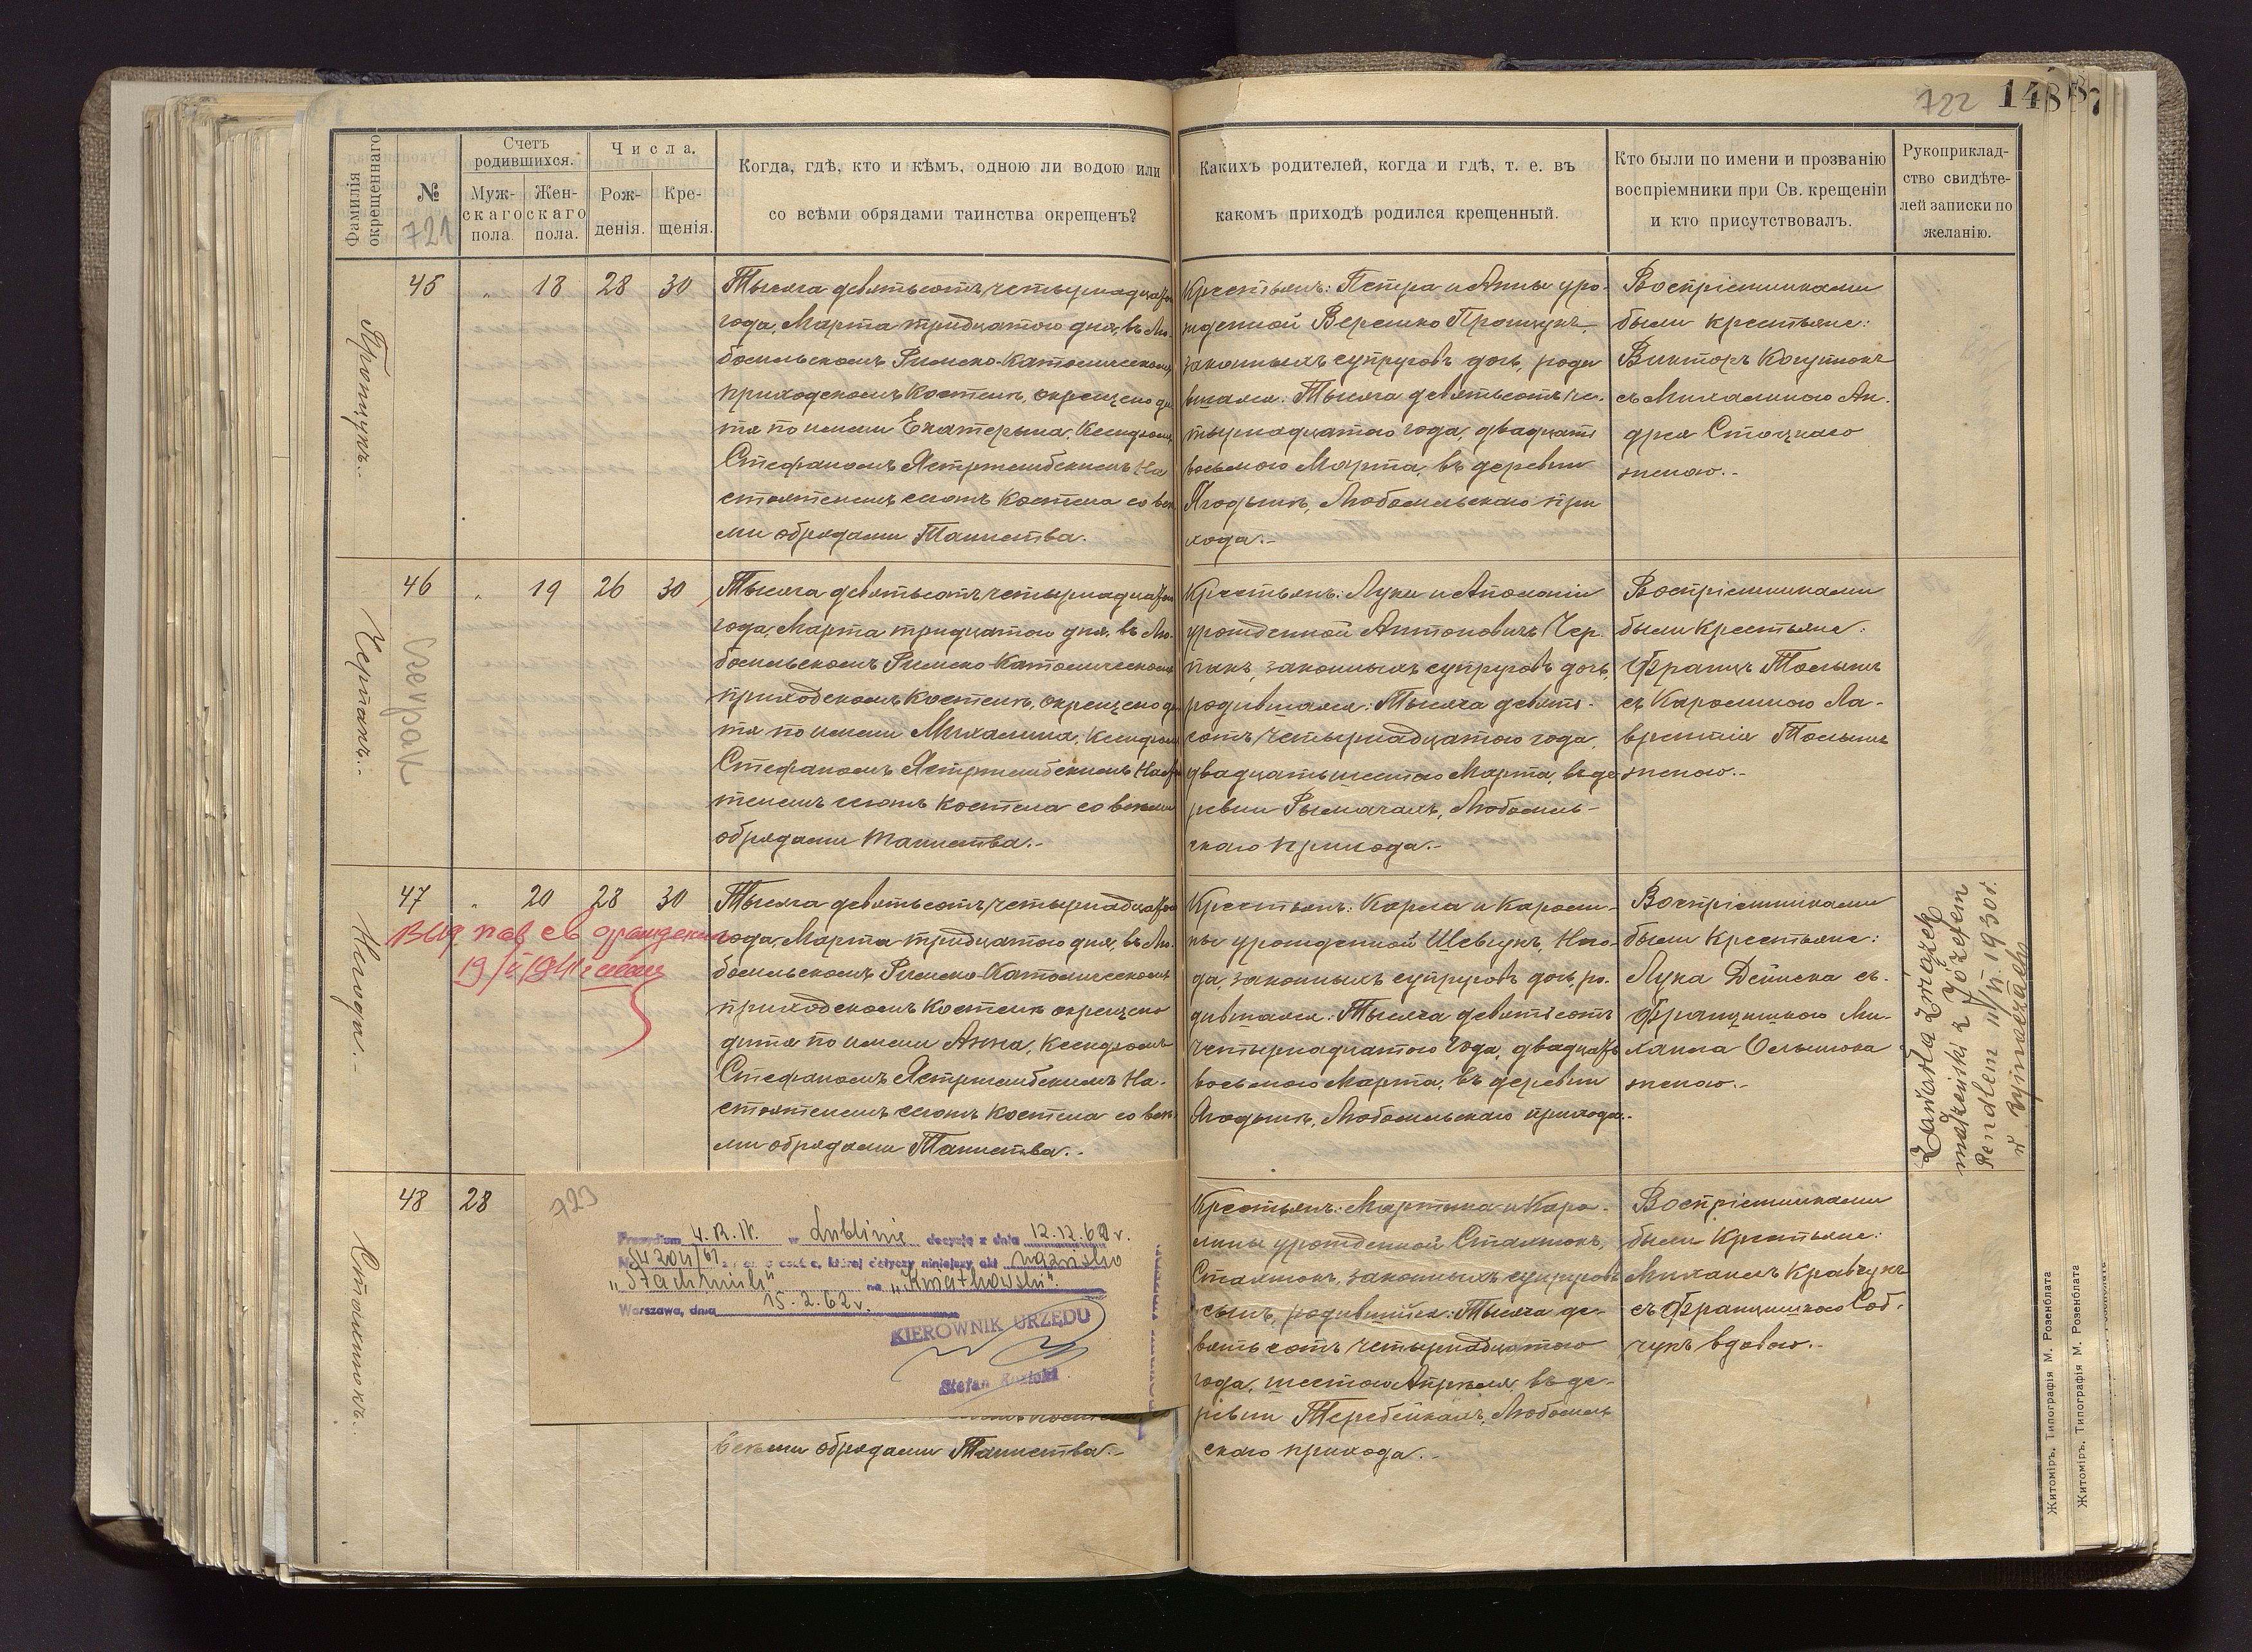 722 148
Фамилія окрещеннаго
№
721
Счетъ родившихся.
Муж-скаго пола.
Жен-скаго пола.
Числа.
Рож-денія.
Кре-щенія.
Когда, гдѣ, кто и кѣмъ, одною ли водою или
со всѣми обрядами таинства окрещенъ?
Какихъ родителей, когда и гдѣ, т. е. въ
какомъ приходѣ родился крещенный.
Кто были по имени и прозванію
воспріемники при Св. крещеніи
и кто присутствовалъ.
Рукоприклад-
ство свидѣте-
лей записки по
желанію.
Прощукъ.
45 " 18 28 30
Тысяча девятьсотъ четырнадцатаго
года, Марта тридцатаго дня, въ Лю-
бомльскомъ Римско-Католическомъ
приходскомъ Костелѣ, окрещено ди
тя по имени Екатерина, Ксендзомъ
Стефаномъ Ястржембскимъ На
стоятелемъ сего Костела со всѣ
ми обрядами Таинства.
Крестьянъ: Петра и Анны уро-
жденной Веремко Прощукъ,
законныхъ супруговъ дочь, роди
вшаяся: Тысяча девятьсотъ че-
тырнадцатаго года, двадцать
восьмого Марта, въ деревни
Ягодынѣ, Любомльскаго при
хода.-
Воспріемниками
были крестьяне:
Викторъ Когутюкъ
съ Михалиною Ан-
дрея Стоцкаго
женою.-
Черпакъ.-
Czerpak
46 " 19 26 30
Тысяча девятьсотъ четырнадцатаго
года, Марта тридцатаго дня, въ Лю-
бомльскомъ Римско-Католическомъ
приходскомъ Костелѣ, окрещено ди
тя по имени Михалина, Ксендзомъ
Стефаномъ Ястржембскимъ Насто
телемъ сего Костела со всѣми
обрядами таинства.-
Крестьянъ: Луки и Аполоніи
урожденной Антоновичъ Чер-
пакъ, законныхъ супруговъ дочь,
родившаяся: Тысяча девять-
сотъ четырнадцатаго года,
двадцать шестаго Марта, въ де
ревни Рымачахъ, Любомль-
скаго прихода.-
Воспріемниками
были Крестьяне:
Францъ
съ Каролиною Ла-
врентія
женою.-
47 " 20 28 30
19/ 1941
Тысяча девятьсотъ четырнадцатаго
года, Марта тридцатаго дня, въ Лю-
бомльскомъ Римско-Католическомъ
приходскомъ Костелѣ окрещено
дитя по имени Анна, Ксендзомъ
Стефаномъ Ястржембскимъ На-
стоятелемъ сего Костела со всѣ
ми обрядами Таинства.-
Крестьянъ: Карла и Кароли-
ны урожденной Шевчукъ,
законныхъ супруговъ дочь, ро-
дившаяся: Тысяча девятьсотъ
четырнадцатаго года, двадцать
восьмого Марта, въ деревни
Ягодынѣ, Любомльскаго прихода.-
Воспріемниками
были Крестьяне:
Лука Дейнека съ
Францишкою Ми-
хаила
женою.-
Zawarła związek
małżeński z Józefem
Rendlem 11/VI.1930r.
w Rymaczach
48 28
723
Prezydium 4.R.N. w Lublinie decyzją z dnia 12.12.61 r.
osobie, której dotyczy niniejszy akt nazwisko
na "Kwiatkowski".
Warszawa, dnia 15.2.62 r.
KIEROWNIK URZĘDU
Stefan
всѣми обрядами Таинства.-
Крестьянъ: Мартина и Каро-
лины урожденной Стахнюкъ,
Стахнюкъ, законныхъ супруговъ
сынъ, родившійся: Тысяча де-
вятьсотъ четырнадцатаго
года, шестаго Апрѣля, въ де-
ревни Теребейкахъ, Любомль
скаго прихода.-
Воспріемниками
были Крестьяне:
Михаилъ Кравчукъ
съ Францишкою Соб-
чукъ вдовою.-
Стахнюкъ.
Житоміръ, Типографія М. Розенблата
Житоміръ, Типографія М. Розенблата